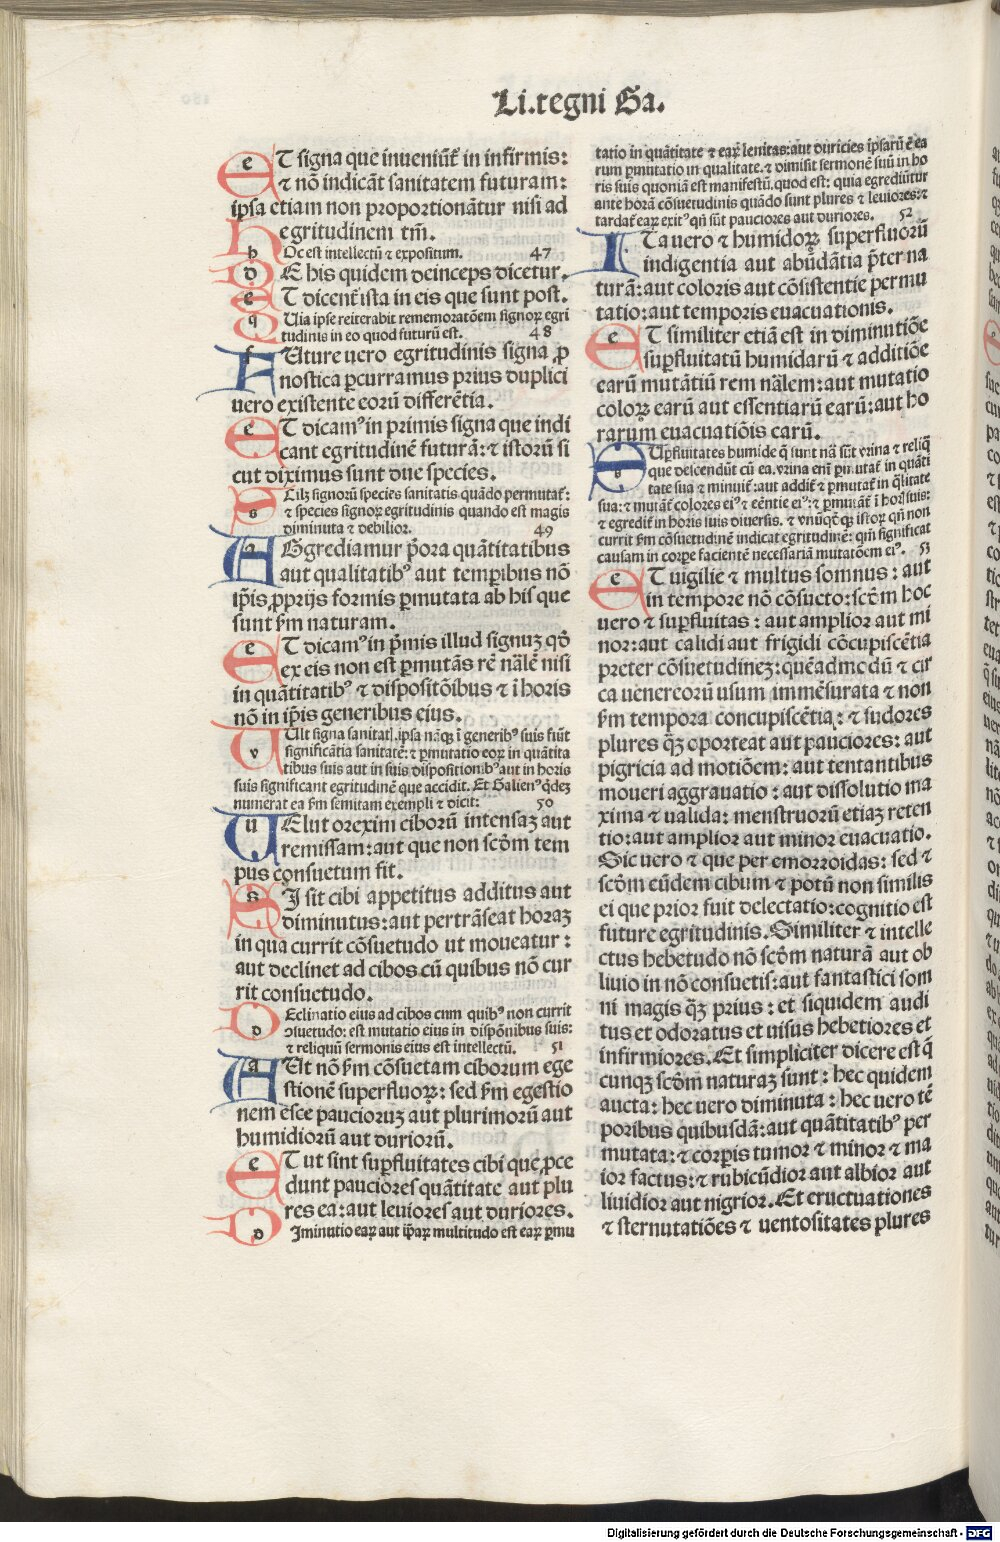 Li.tegni Ga.
ET signa que inueniūt᷑ in infirmis:
⁊ nō indicāt sanitatem futuram:
ipsa etiam non proportionāntur nisi ad
egritudinem tm̄.
HOc est intellectū ⁊ expositum. 47
DE his quidem deinceps dicetur.
ET dicent᷑ ista in eis que sunt post.
QUia ipse reiterabit rememoratōem signoꝝ egri
tudinis in eo quod futurū est. 48
FUture uero egritudinis signa ꝓ
nostica ꝑcurramus prius duplici
uero existente eorū differētia.
ET dicamꝰ in primis signa que indi
cant egritudinē futurā: ⁊ istorū si
cut diximus sunt due species.
SCilꝫ signorū species sanitatis quādo permutat᷑:
⁊ species signoꝝ egritudinis quando est magis
diminuta ⁊ debilior. 49
AGgrediamur p̄ora quātitatibus
aut qualitatibꝰ aut temꝑibus nō
ip̄is ꝓprijs formis ꝑmutata ab his que
sunt ẜm naturam.
ET dicamꝰ in p̄mis illud signuꝫ qd̄
ex eis non est ꝑmutās rē nālē nisi
in quātitatibꝰ ⁊ dispositōibus ⁊ ī horis
nō in ip̄is generibus eius.
VUlt signa sanitatꝭ. ipsa nāqꝫ ī generibꝰ suis siūt
significātia sanitatē: ⁊ ꝑmutatio eoꝝ in quātita
tibus suis aut in suis dispositionibꝰ aut in horis
suis significant egritudinē que accidit. Et Galienꝰ qdeꝫ
numerat ea ẜm semitam exempli ⁊ dicit: 50
UElut orexim ciborū intensaꝫ aut
remissam: aut que non scd̄m tem
pus consuetum fit.
SI sit cibi appetitus additus aut
diminutus: aut pertrāseat horaꝫ
in qua currit cōsuetudo ut moueatur:
aut declinet ad cibos cū quibus nō cur
rit consuetudo.
DEclinatio eius ad cibos cum quibꝰ non currit
ꝯsuetudo: est mutatio eius in dispōnibus suis:
⁊ reliquū sermonis eius est intellectū. 51
AUt nō ẜm cōsuetam ciborum ege
stionē superfluoꝝ: sed ẜm egestio
nem esce paucioruꝫ aut plurimorū aut
humidiorū aut duriorū.
ET ut sint suꝑfluitates cibi que ꝓce
dunt pauciores quātitate aut plu
res ea: aut leuiores aut duriores.
DIminutio eaꝝ aut ip̄aꝝ multitudo est eaꝝ ꝑmu
tatio in quātitate ⁊ eaꝝ lenitas: aut duricies ipsarū ē ea
rum ꝑmutatio in qualitate. ⁊ dimisit sermonē suū in ho
ris suis quoniā est manifestū. quod est: quia egrediūtur
ante horā cōsuetudinis quādo sunt plures ⁊ leuiores: ⁊
tardat᷑ eaꝝ exitꝰ qn̄ sūt pauciores aut duriores. 52
ITa uero ⁊ humidoꝝ superfluorū
indigentia aut abūdātia p̄ter na
turā: aut coloris aut cōsistentie permu
tatio: aut temporis euacuationis.
ET similiter etiā est in diminutiōe
suꝑfluitatū humidarū ⁊ additiōe
earū mutātiū rem nālem: aut mutatio
coloꝝ earū aut essentiarū earū: aut ho
rarum euacuatiōis earū.
SUꝑfluitates humide q̄ sunt nā sūt vrina ⁊ reliq̄
que descendūt cū ea. vrina eni᷑ ꝑmutat᷑ in quāti
tate sua ⁊ minuit᷑: aut addit᷑ ⁊ ꝑmutat᷑ in q̄litate
sua: ⁊ mutāt᷑ colores eiꝰ ⁊ eēntie eiꝰ: ⁊ ꝑmutāt᷑ ī horꝭ suis:
⁊ egredit᷑ in horis suis diuersis. ⁊ vnūqd᷑qꝫ istoꝝ qn̄ non
currit ẜm cōsuetudinē indicat egritudinē: qm̄ significat
causam in corpe facientē necessariā mutatōem eiꝰ. 53
ET uigilie ⁊ multus somnus: aut
in tempore nō cōsueto: scd̄m hoc
uero ⁊ suꝑfluitas: aut amplior aut mi
nor: aut calidi aut frigidi cōcupiscētia
preter cōsuetudineꝫ: quēadmodū ⁊ cir
ca uenereorū usum immēsurata ⁊ non
ẜm tempora concupiscētia: ⁊ sudores
plures qꝫ oporteat aut pauciores: aut
pigricia ad motiōem: aut tentantibus
moueri aggrauatio: aut dissolutio ma
xima ⁊ ualida: menstruorū etiaꝫ reten
tio: aut amplior aut minor euacuatio.
Sic uero ⁊ que per emorroidas: sed ⁊
scd̄m eūdem cibum ⁊ potū non similis
ei que prior fuit delectatio: cognitio est
future egritudinis. Similiter ⁊ intelle
ctus hebetudo nō scd̄m naturā aut ob
liuio in nō consuetis: aut fantastici som
ni magis qꝫ prius: et siquidem audi
tus et odoratus et uisus hebetiores et
infirmiores. Et simpliciter dicere est q̄
cunqꝫ scd̄m naturaꝫ sunt: hec quidem
aucta: hec uero diminuta: hec uero tē
poribus quibusdā: aut quātitatibꝰ per
mutata: ⁊ corꝑis tumor ⁊ minor ⁊ ma
ior factus: ⁊ rubicūdior aut albior aut
liuidior aut nigrior. Et eructuationes
⁊ sternutatiōes ⁊ uentositates plures
Digitalisierung gefördert durch die Deutsche Forschungsgemeinschaft - DFG